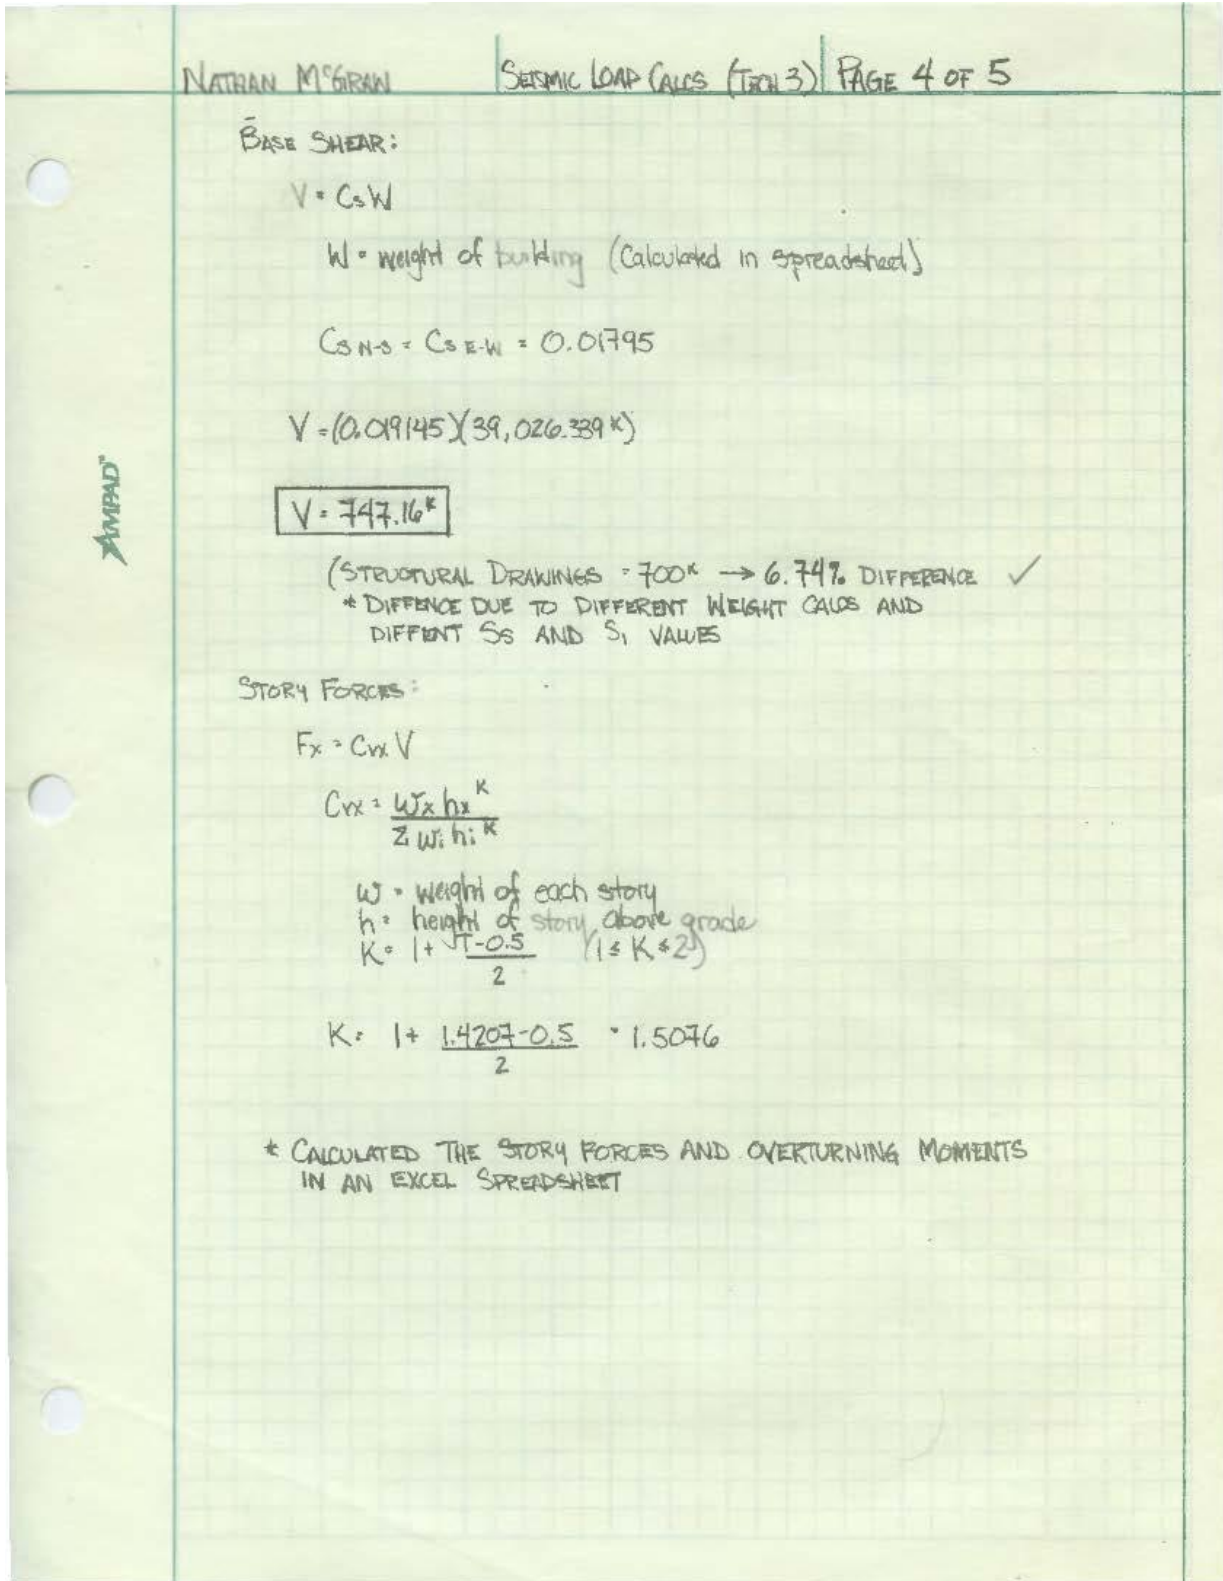 NATHAN McGRAW SEISMIC LOAD CALCS (TECH 3) PAGE 4 OF 5
BASE SHEAR:
V = CsW
W = weight of building (Calculated in spreadsheet)
Cs N-S = Cs E-W = 0.01795
V = (0.019145)(39,026.339 K)
AMPAD™
V = 747.16 K
(STRUCTURAL DRAWINGS = 700 K → 6.74% DIFFERENCE ✓
* DIFFENCE DUE TO DIFFERENT WEIGHT CALCS AND
DIFFENT Ss AND S1 VALUES
STORY FORCES:
Fx = Cvx V
Cvx = wx hx^K / Σ wi hi^K
w = weight of each story
h = height of story above grade
K = 1 + (T-0.5)/2 (1 ≤ K ≤ 2)
K = 1 + (1.4207-0.5)/2 = 1.5076
* CALCULATED THE STORY FORCES AND OVERTURNING MOMENTS
IN AN EXCEL SPREADSHEET